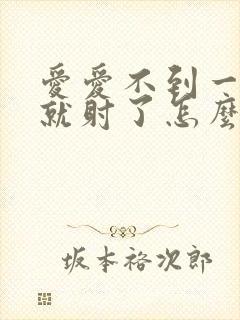 愛愛不到一
就射了怎麼
坂本裕次郎